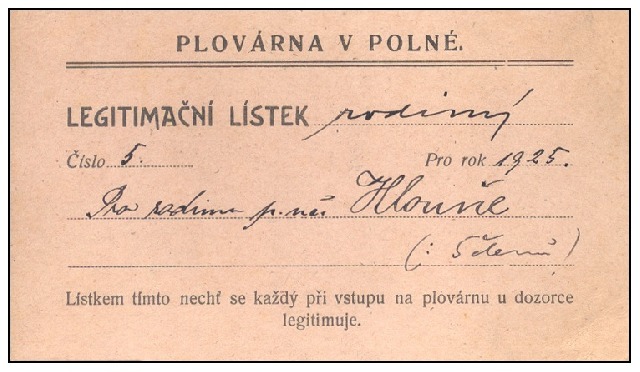 PLOVÁRNA V POLNÉ.
LEGITIMAČNÍ LÍSTEK rodinný
Číslo 5. Pro rok 1925.
Pro rodinu Hlouše
(: 5 členů)
Lístkem tímto nechť se každý při vstupu na plovárnu u dozorce
legitimuje.